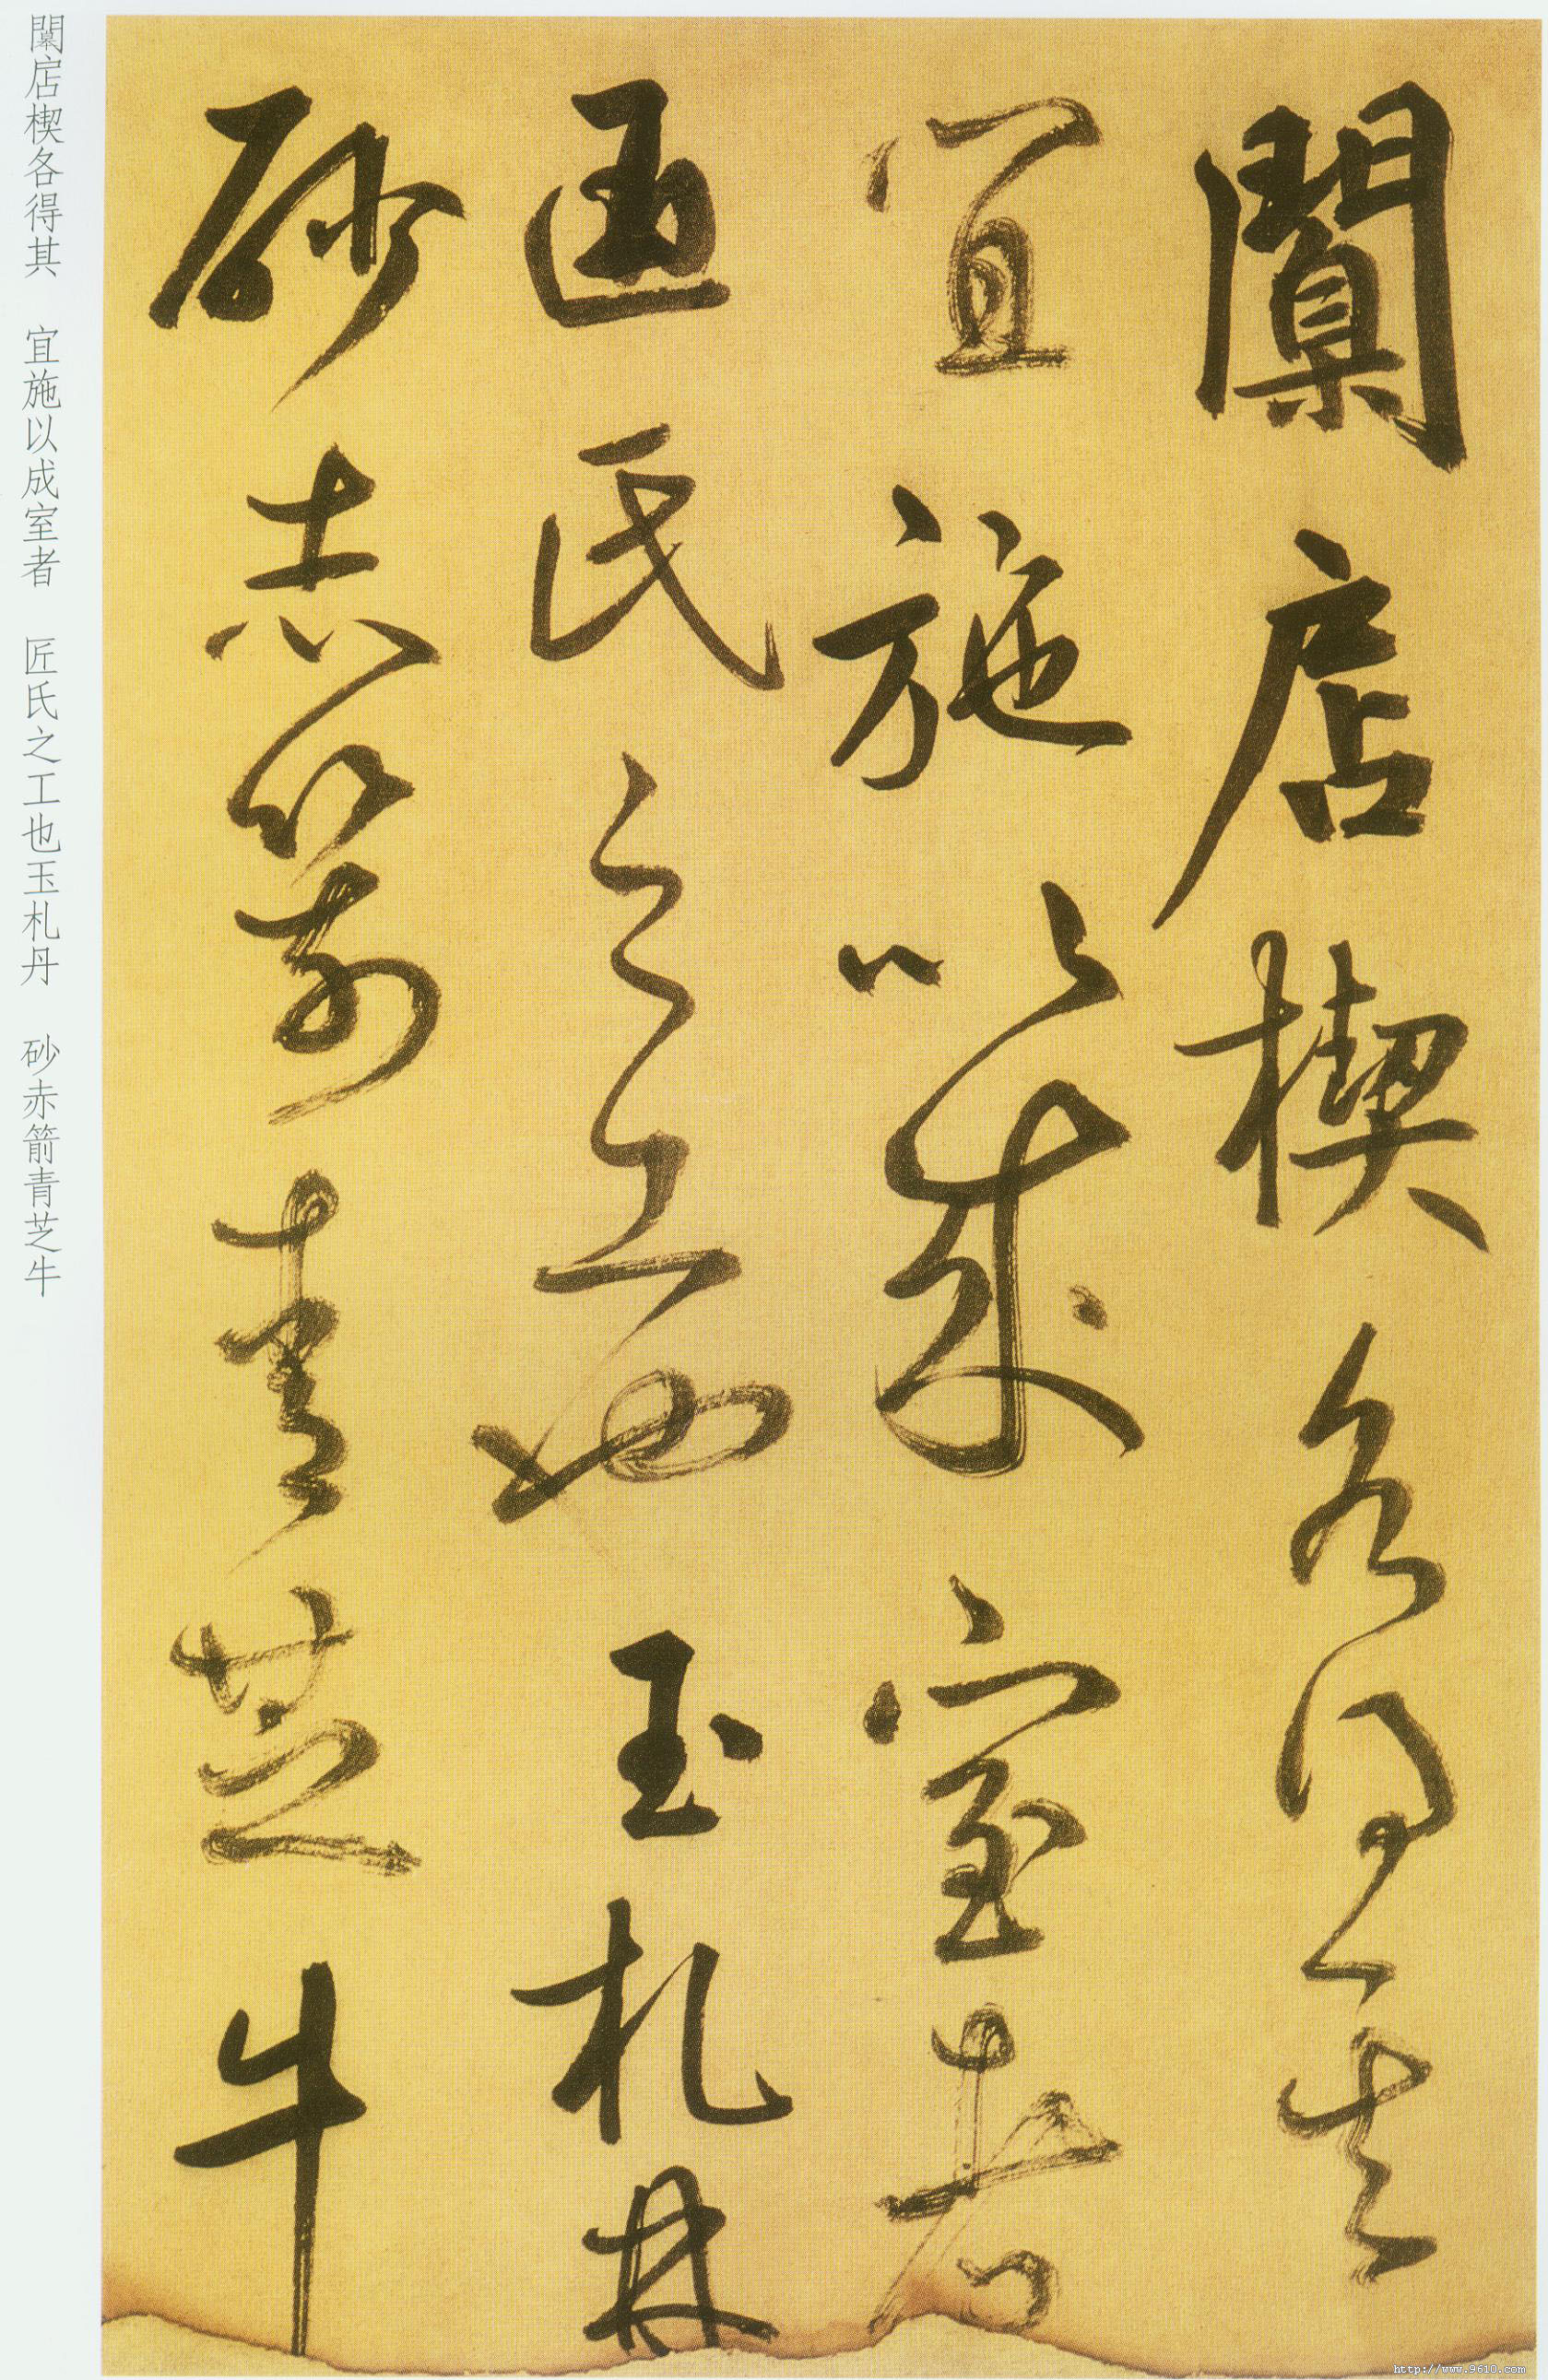 闑扂楔各得其
宜施以成室者
匠氏之工也玉札丹
砂赤箭青芝牛
闑扂楔各得其 宜施以成室者 匠氏之工也玉札丹 砂赤箭青芝牛
http://www.9610.com